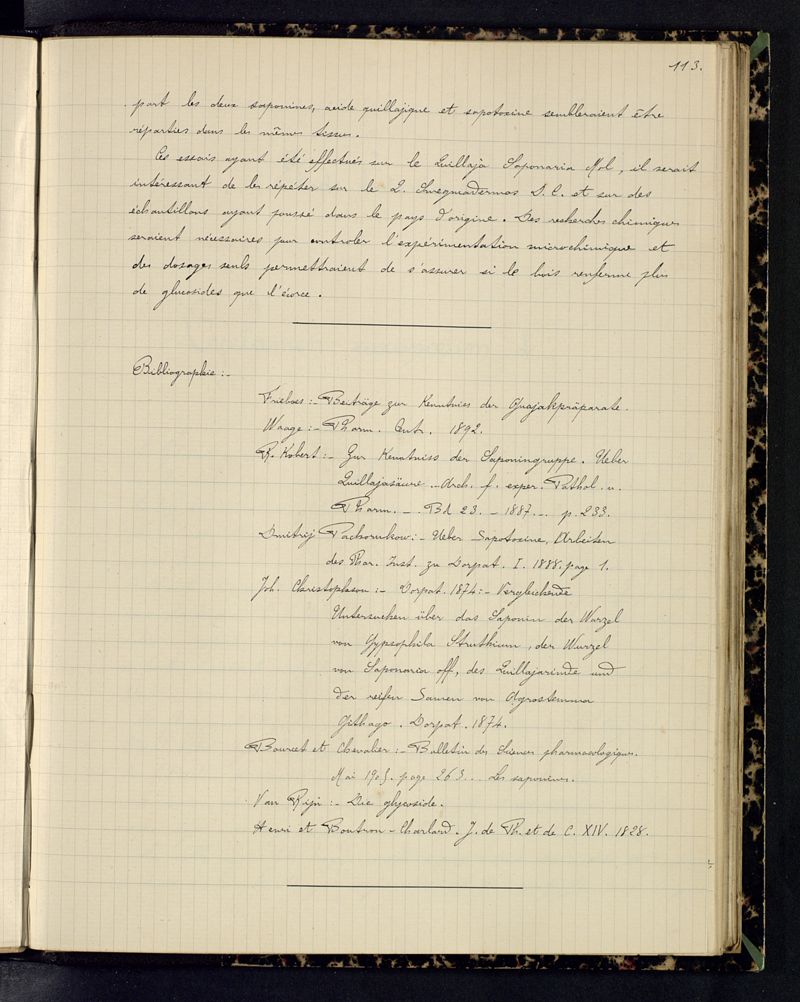 113.
part les deux saponines, acide quillajique et sapotoxine sembleraient être
réparties dans les mêmes tissus.
Ces essais ayant été effectués sur le Quillaja Saponaria Mol, il serait
intéressant de les répéter sur le Q. Smegmadermos D. C. et sur des
échantillons ayant poussé dans le pays d'origine. Des recherches chimiques
seraient nécessaires pour controler l'expérimentation microchimique et
des dosages seuls permettraient de s'assurer si le bois renferme plus
de glucosides que l'écorce.
Bibliographie :-
Frieboes :- Beiträge zur Kenntniss der Guajakpräparate.
Waage :- Pharm. Centr. 1892.
R. Kobert :- Zur Kenntniss der Saponingruppe. Ueber
Quillajasäure - Arch. f. exper. Pathol. u.
Pharm. - Bd 23. - 1887. - p. 233.
Dmitrij Pachorukow :- Ueber Sapotoxine, Arbeiten
des Phar. Inst. zu Dorpat. I. 1888. page 1.
Joh. Christophsou :- Dorpat. 1874 :- Vergleichende
Untersuchen über das Saponin der Wurzel
von Gypsophila Struthium, der Wurzel
von Saponaria off, des Quillajarinde und
der reifen Samen von Agrostemma
Githago. Dorpat. 1874.
Bourcet et Chevalier :- Bulletin des Sciences pharmacologiques.
Mai 1905. page 263... Les saponines.
Van Rijn :- Die glycoside.
Henri et Boutron-Charlard. J. de Ph. et de C. XIV. 1828.